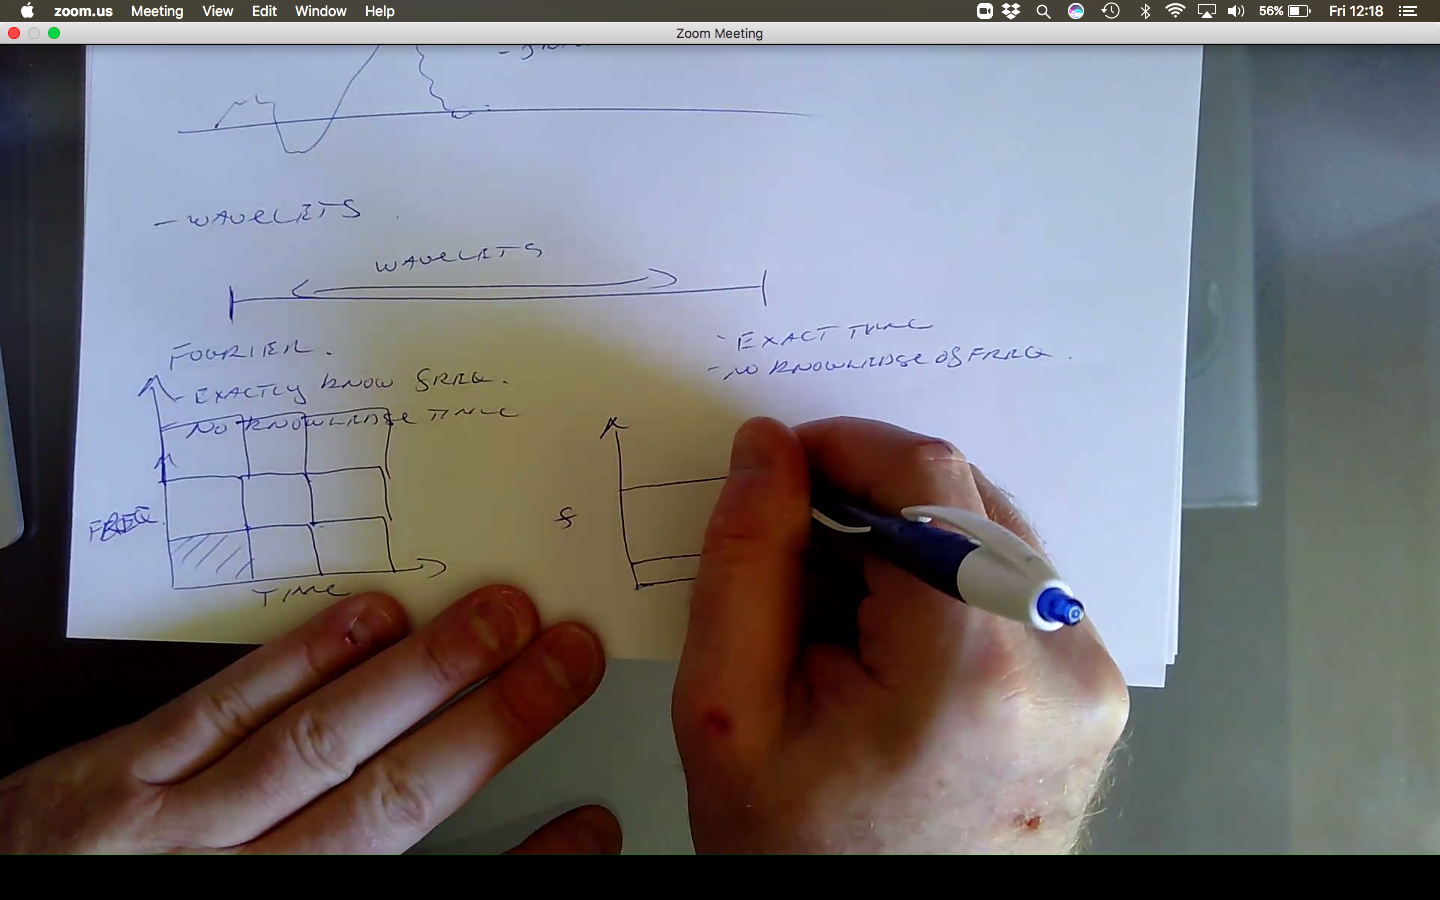 zoom.us Meeting View Edit Window Help 56% Fri 12:18
Zoom Meeting
- WAVELETS
WAVELETS
FOURIER.
- EXACTLY KNOW FREQ.
- NO KNOWLEDGE TIME
- EXACT TIME
- NO KNOWLEDGE OF FREQ.
FREQ.
TIME
f